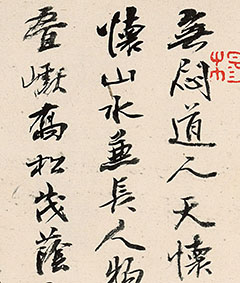 無悶道人天懷
懷山水兼長人物
疊巘喬松茂蔭